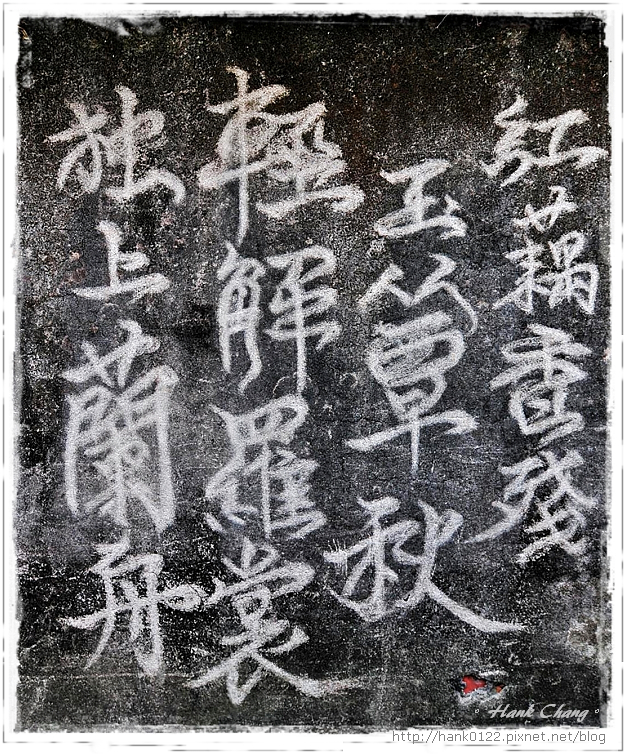 紅藕重殘
玉簟秋
輕解羅裳
独上蘭舟
° Hank Chang °
http://hank0122.pixnet.net/blog